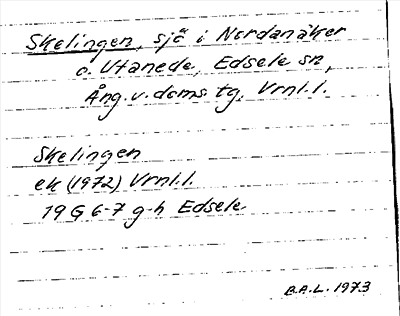 Skelingen, sjö i Nordanåker
o. Utanede, Edsele sn,
Ång. v. doms. tg, Vrnl.l.
Skelingen
ek (1972) Vrnl.l.
19 G 6-7 g-h Edsele
B.A.L. 1973